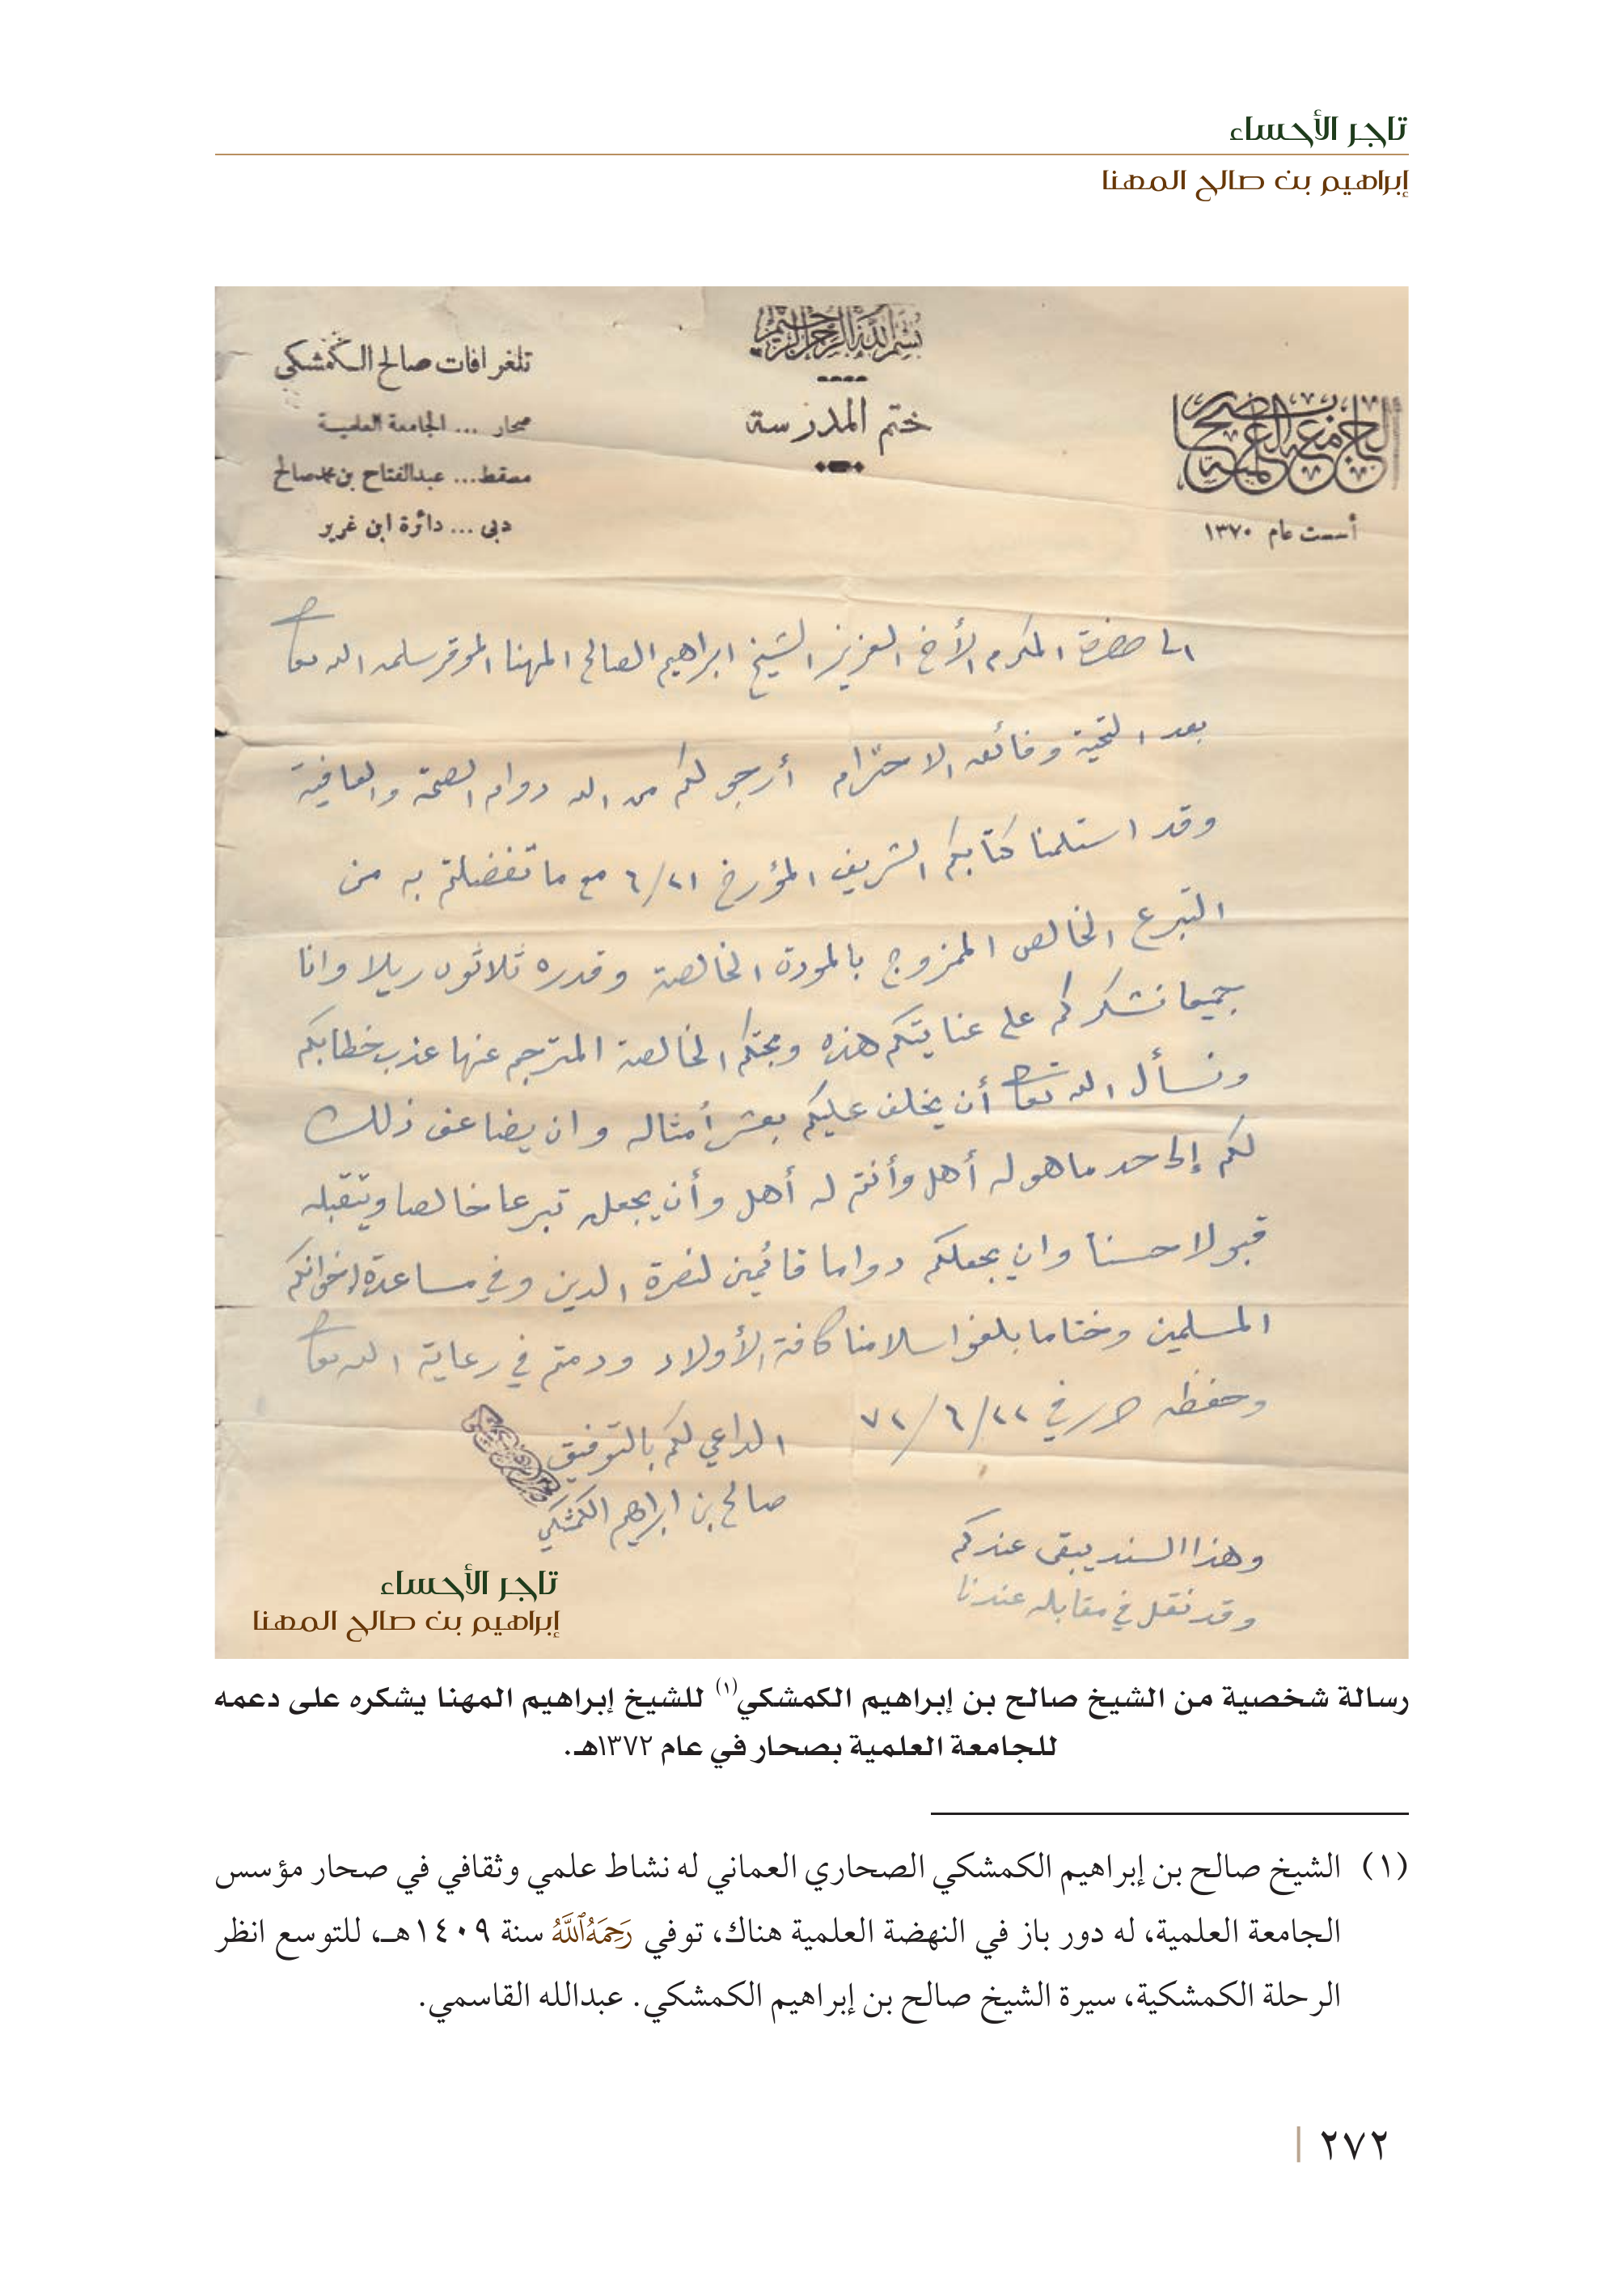 تاجر الأحساء
إبراهيم بن صالح المهنا
بسم الله الرحمن الرحيم
ختم المدرسة
الجامعة العلمية بصحار
أسست عام ١٣٧٠
تلغرافات صالح الكمشكي
صحار ... الجامعة العلمية
مسقط ... عبدالفتاح بن محمد صالح
دبى ... دائرة ابن غرير
الى حضرة المكرم الأخ العزيز الشيخ ابراهيم الصالح المهنا الموقر سلمه الله تعالى
بعد التحية وفائق الاحترام أرجو لكم من الله دوام الصحة والعافية
وقد استلمنا كتابكم الشريف المؤرخ ٦/٢١ مع ما تفضلتم به من
التبرع الخالص الممزوج بالمودة الخالصة وقدره ثلاثون ريلا وانا
جميعا نشكركم على عنايتكم هذه ومحبتكم الخالصة المترجم عنها عذب خطابكم
ونسأل الله تعالى أن يخلف عليكم بعشر أمثاله وان يضاعف ذلك
لكم إلى حد ما هو له أهل وأنتم له أهل وأن يجعله تبرعا خالصا ويتقبله
قبولا حسنا وان يجعلكم دواما قائمين لنصرة الدين وفي مساعدة إخوانكم
المسلمين وختاما بلغوا سلامنا كافة الأولاد ودمتم في رعاية الله تعالى
وحفظه حرر في ٢٢/٦/٧٢
الداعي لكم بالتوفيق
صالح بن ابراهيم الكمشكي
وهذا السند يبقى عندكم
وقد نقل في مقابله عندنا
تاجر الأحساء
إبراهيم بن صالح المهنا
رسالة شخصية من الشيخ صالح بن إبراهيم الكمشكي(١) للشيخ إبراهيم المهنا يشكره على دعمه
للجامعة العلمية بصحار في عام ١٣٧٢هـ.
(١) الشيخ صالح بن إبراهيم الكمشكي الصحاري العماني له نشاط علمي وثقافي في صحار مؤسس
الجامعة العلمية، له دور باز في النهضة العلمية هناك، توفي رَحِمَهُ ٱللَّهُ سنة ١٤٠٩هـ، للتوسع انظر
الرحلة الكمشكية، سيرة الشيخ صالح بن إبراهيم الكمشكي. عبدالله القاسمي.
٢٧٢